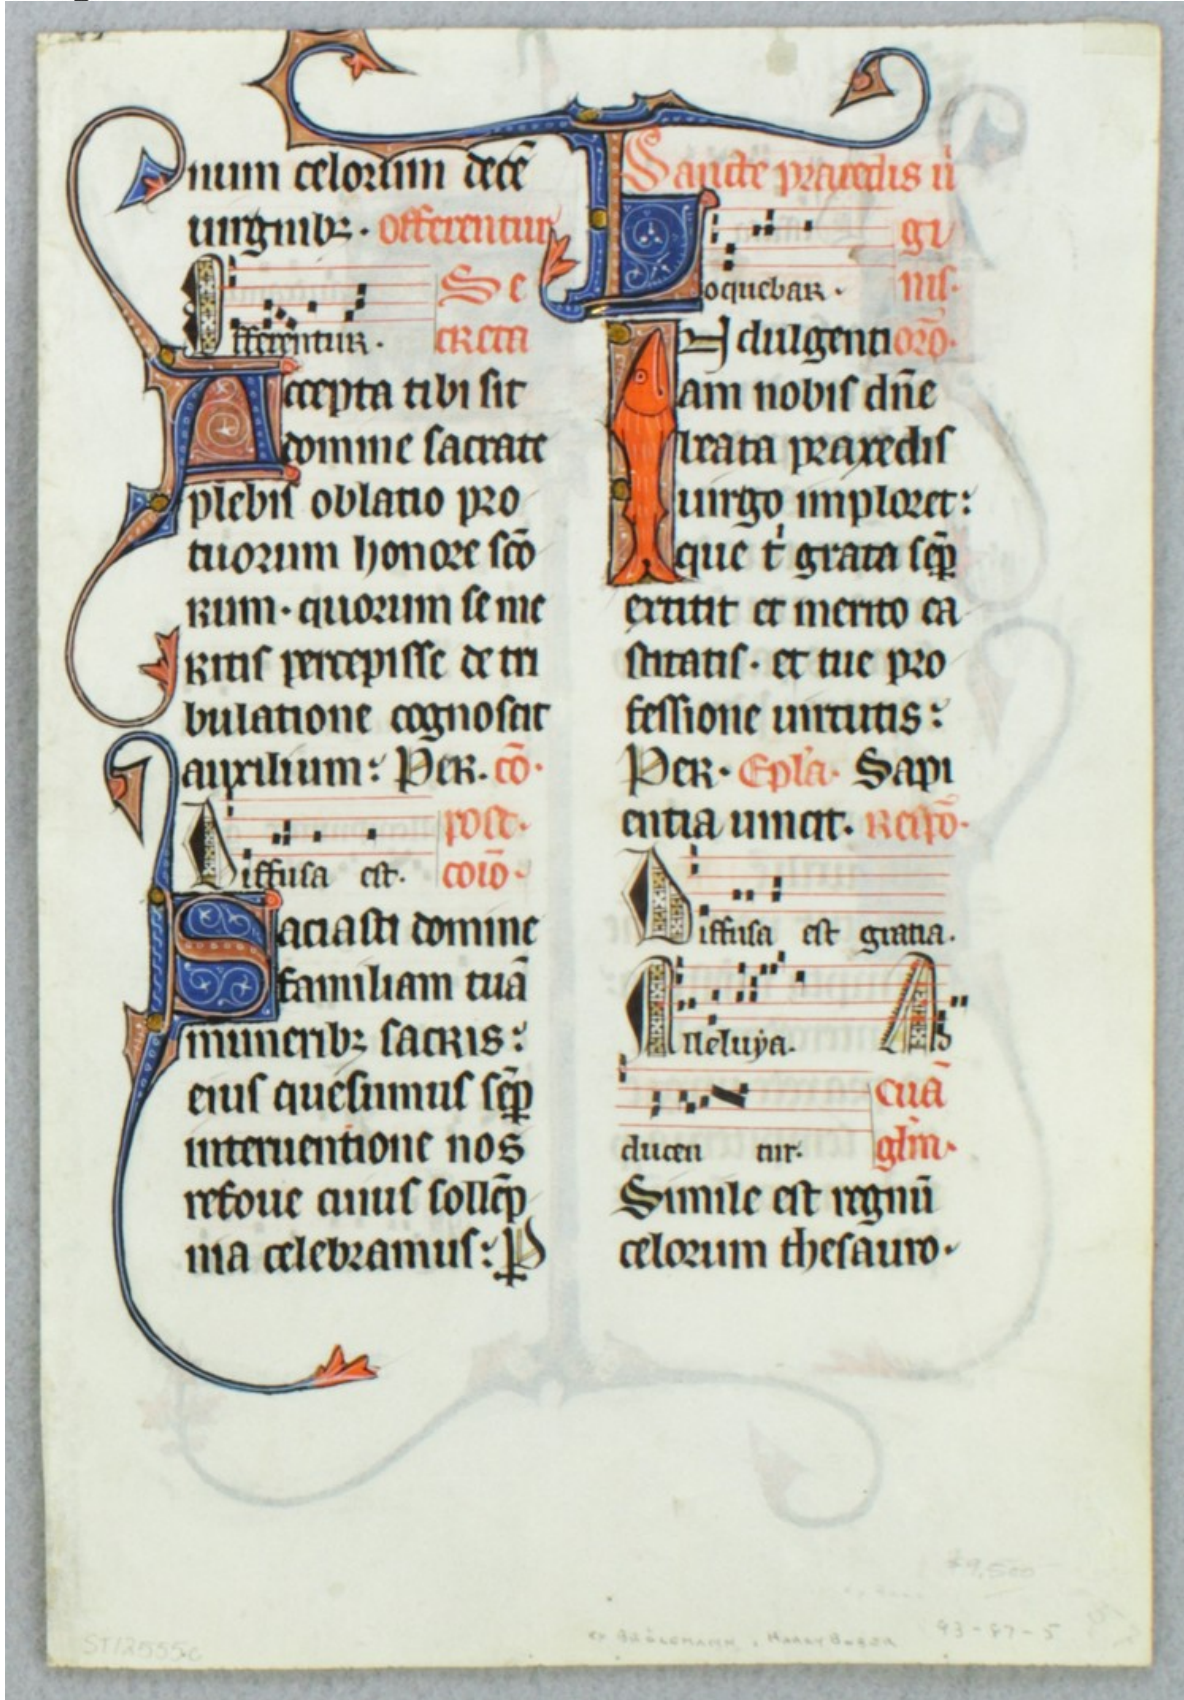 num celorum decē
uirginibꝫ · offerentur
Offerentur. Se
creta
Accepta tibi sit
domine sacrate
plebis oblatio pro
tuorum honore sc̄o
rum · quorum se me
ritis percepisse de tri
bulatione cognoscit
auxilium: Per. cō·
Diffusa est. post·
coīo·
Saciasti domine
familiam tuā
muneribꝫ sacris:
eius quesumus sēp̄
interuentione nos
refoue cuius sollēp
nia celebramus: P
Sancte praxedis ū
gi
Loquebar. nis·
Indulgenti orō·
am nobis dn̄e
beata praxedis
uirgo imploret:
que t' grata sēp̄
extitit et merito ca
stitatis · et tue pro
fessione uirtutis:
Per · Epl'a · Sapi
entia uincit. Respō·
Diffusa est gratia.
Alleluya. Ad
ducen tur. euā
glm̄·
Simile est regnū
celorum thesauro·
$9,500
ST12555c
ex Brölemann, Harry Bober 93-87-5